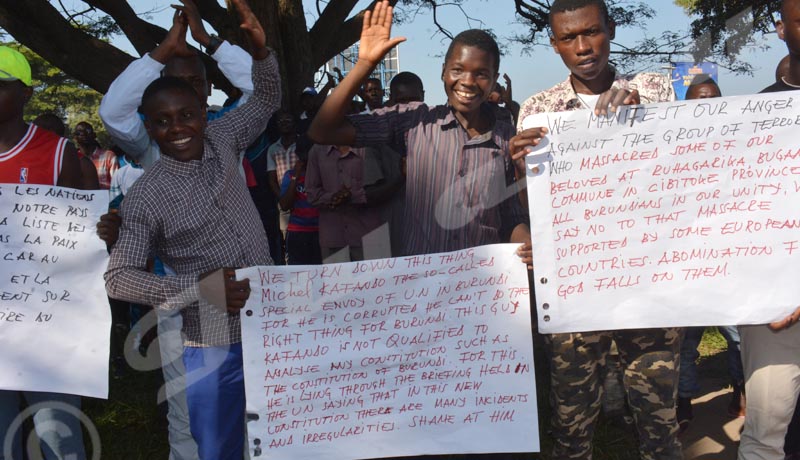 S LES NATIONS
NOTRE PAYS
LISTE DES
LA PAIX
ET LA
ENT SUR
DU
WE TURN DOWN THIS THING
MICHEL KAFANDO THE SO-CALLED
SPECIAL ENVOY OF U.N IN BURUNDI
FOR HE IS CORRUPTED HE CAN'T DO THE
RIGHT THING FOR BURUNDI. THIS GUY
KAFANDO IS NOT QUALIFIED TO
ANALYSE ANY CONSTITUTION SUCH AS
THE CONSTITUTION OF BURUNDI. FOR THIS
HE IS LYING THROUGH THE BRIEFING HELD IN
THE UN SAYING THAT IN THIS NEW
CONSTITUTION THERE ARE MANY INCIDENTS
AND IRREGULARITIES. SHAME AT HIM
WE MANIFEST OUR ANGER
AGAINST THE GROUP OF TERROR
WHO MASSACRED SOME OF OUR
BELOVED AT RUHAGARIKA, BUGAN
COMMUNE IN CIBITOKE PROVINCE
ALL BURUNDIANS IN OUR UNITY,
SAY NO TO THAT MASSACRE
SUPPORTED BY SOME EUROPEAN
COUNTRIES. ABOMINATION F
GOD FALLS ON THEM.